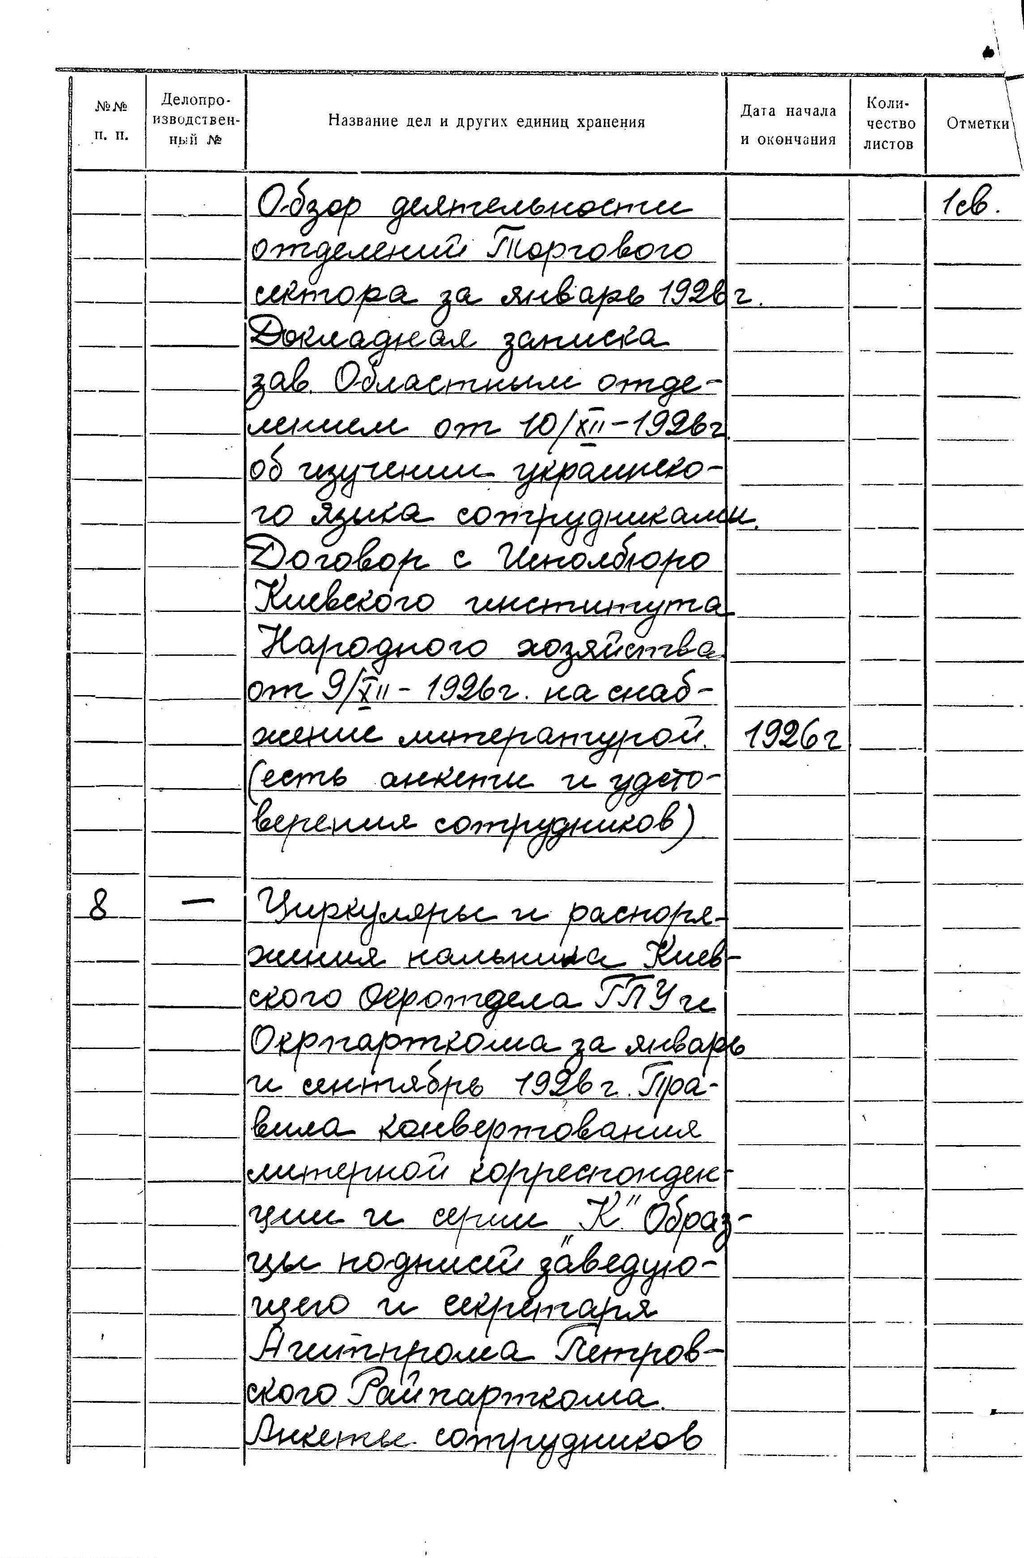 №№ п. п. Делопроизводственный № Название дел и других единиц хранения Дата начала и окончания Количество листов Отметки
Обзор деятельности 1св.
отделений Торгового
сектора за январь 1926г.
Докладная записка
зав. Областным отде-
лением от 10/XII-1926г.
об изучении украинско-
го языка сотрудниками.
Договор с
Киевского института
Народного хозяйства
от 9/XII-1926г. на снаб-
жение литературой. 1926г
(есть анкеты и удсто-
верения сотрудников)
8 — Циркуляры и распоря-
жения нальника Киев-
ского Окротдела ГПУ и
Окрпарткома за январь
и сентябрь 1926г. Пра-
вила конвертования
литерной корреспонден-
ции и серии "К". Образ-
цы подписей заведую-
щего и секретаря
Агитпрома Петров-
ского Райпарткома.
Анкеты сотрудников